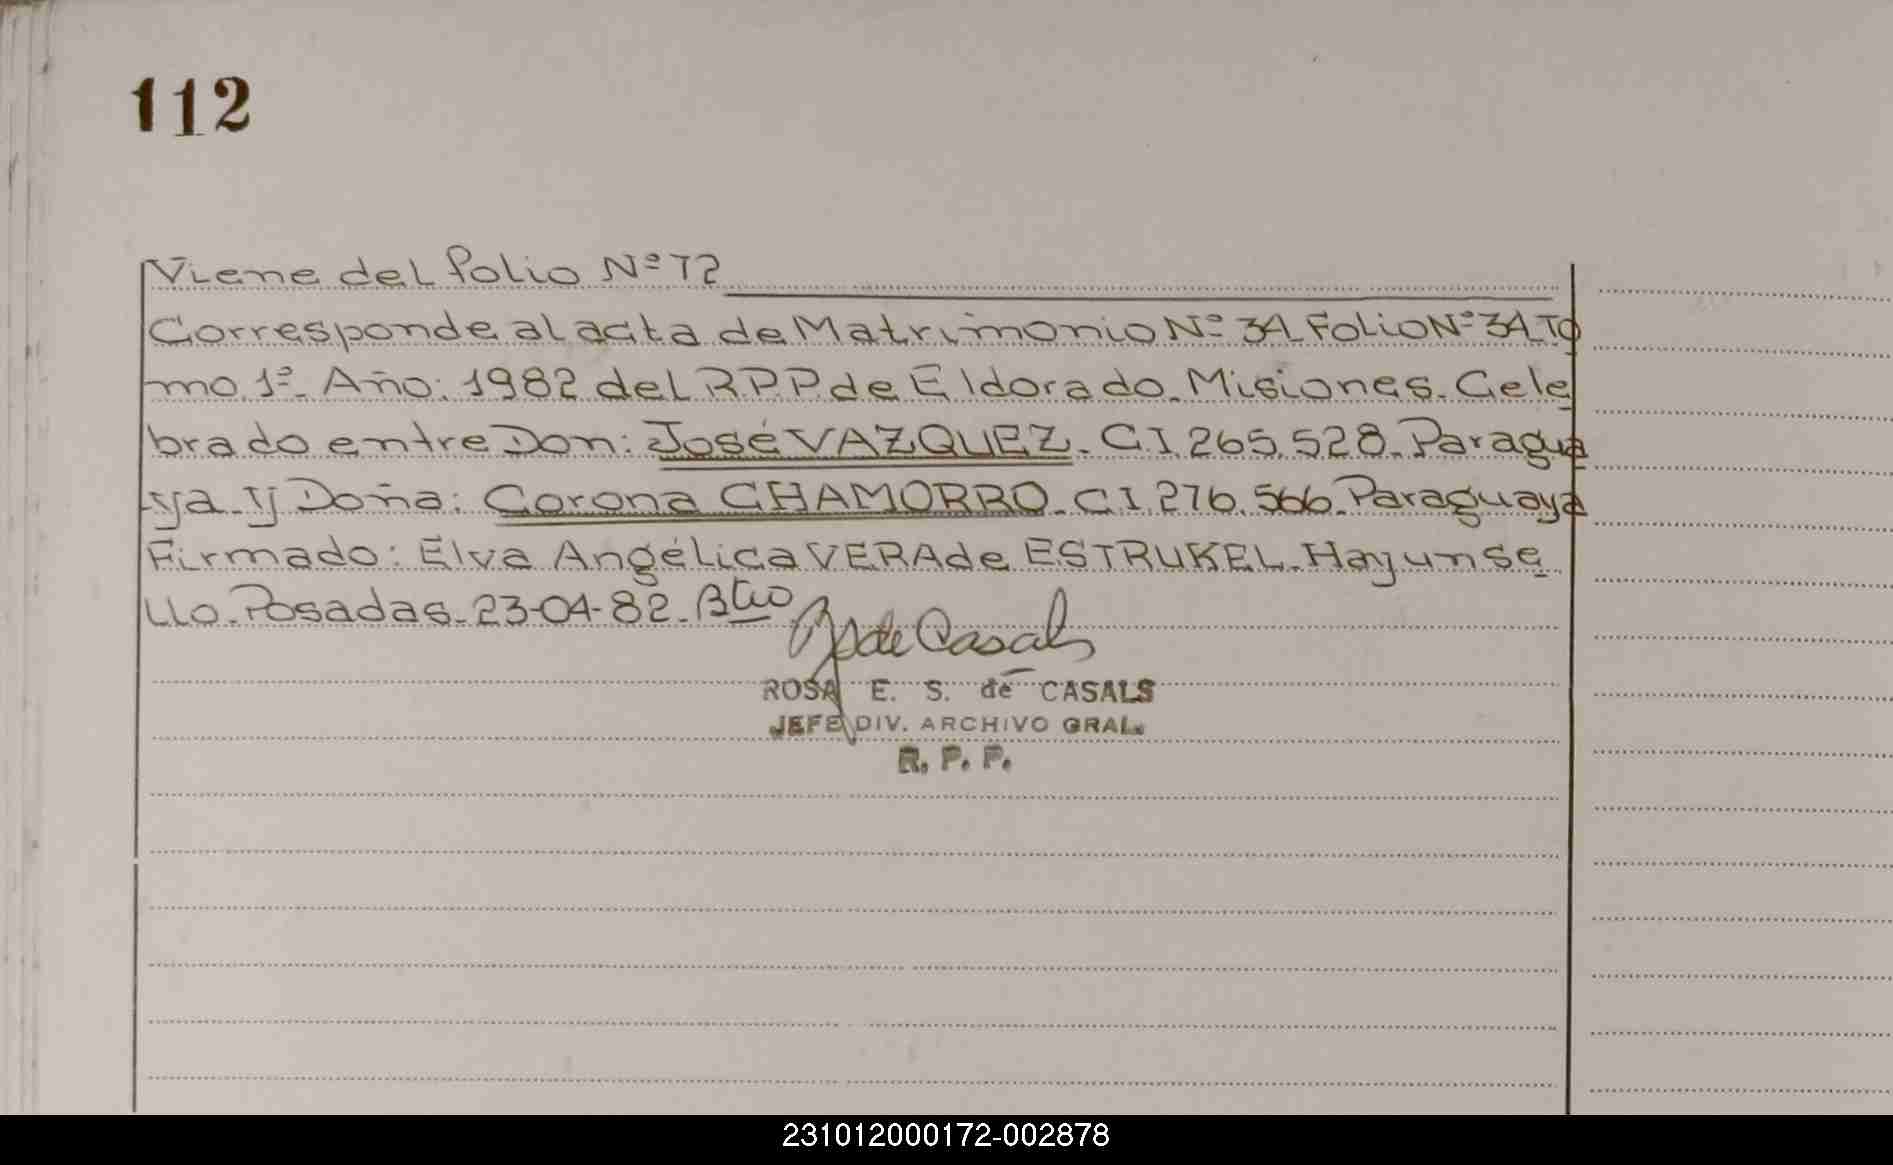 112
Viene del folio Nº 72
Corresponde al acta de Matrimonio Nº 34 Folio Nº 34 To
mo 1º. Año: 1982 del R.P.P. de Eldorado. Misiones. Cele
brado entre Don: José VAZQUEZ. C.I. 265.528. Paragua
ya. y Doña: Corona CHAMORRO. C.I. 276.566. Paraguaya
Firmado: Elva Angélica VERA de ESTRUKEL. Hay un se
llo. Posadas. 23-04-82. Btio
de Casals
ROSA E. S. de CASALS
JEFE DIV. ARCHIVO GRAL.
R. P. P.
231012000172-002878